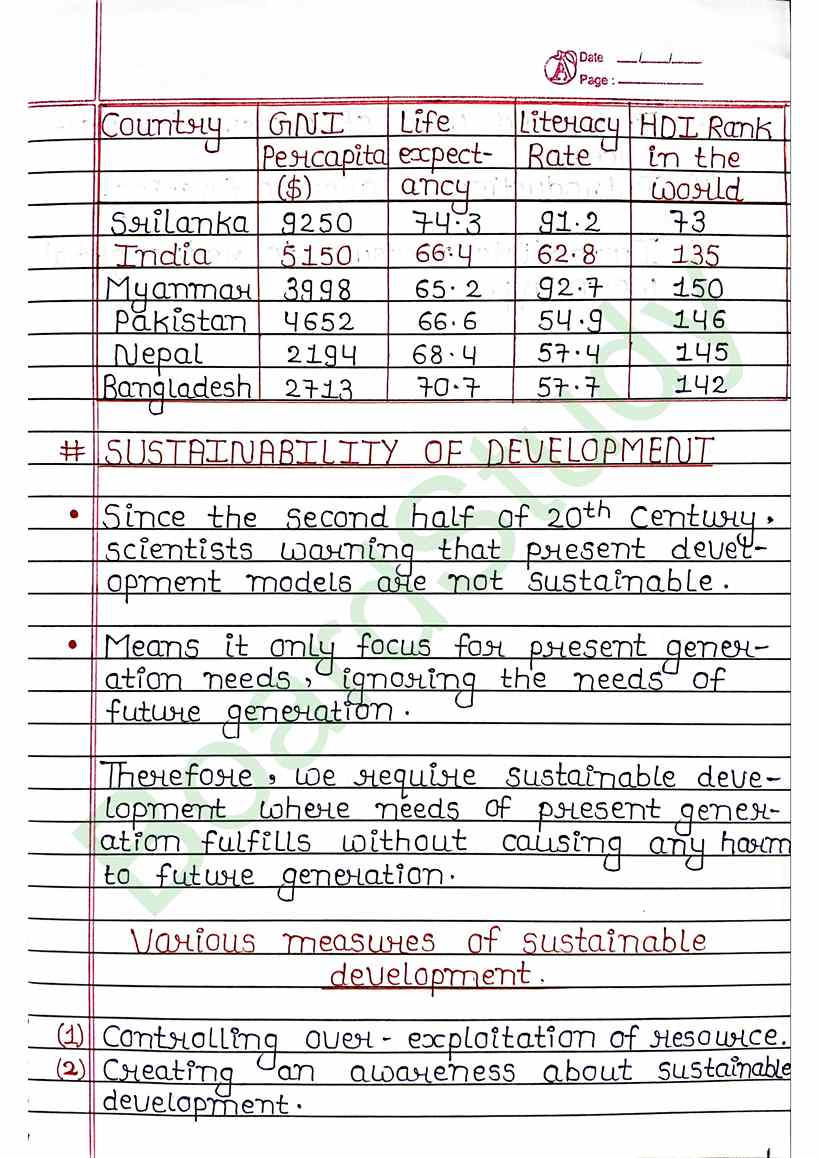 Date __/__/__
Page : ______
Country GNI Life Literacy HDI Rank
Percapita expect- Rate in the
($) ancy world
Srilanka 9250 74.3 91.2 73
India 5150 66.4 62.8 135
Myanmar 3998 65.2 92.7 150
Pakistan 4652 66.6 54.9 146
Nepal 2194 68.4 57.4 145
Bangladesh 2713 70.7 57.7 142
# SUSTAINABILITY OF DEVELOPMENT
• Since the second half of 20th Century,
scientists warning that present devel-
opment models are not sustainable.
• Means it only focus for present gener-
ation needs, ignoring the needs of
future generation.
Therefore, we require sustainable deve-
lopment where needs of present gener-
ation fulfills without causing any harm
to future generation.
Various measures of sustainable
development.
(1) Controlling over-exploitation of resource.
(2) Creating an awareness about sustainable
development.
BoardStudy